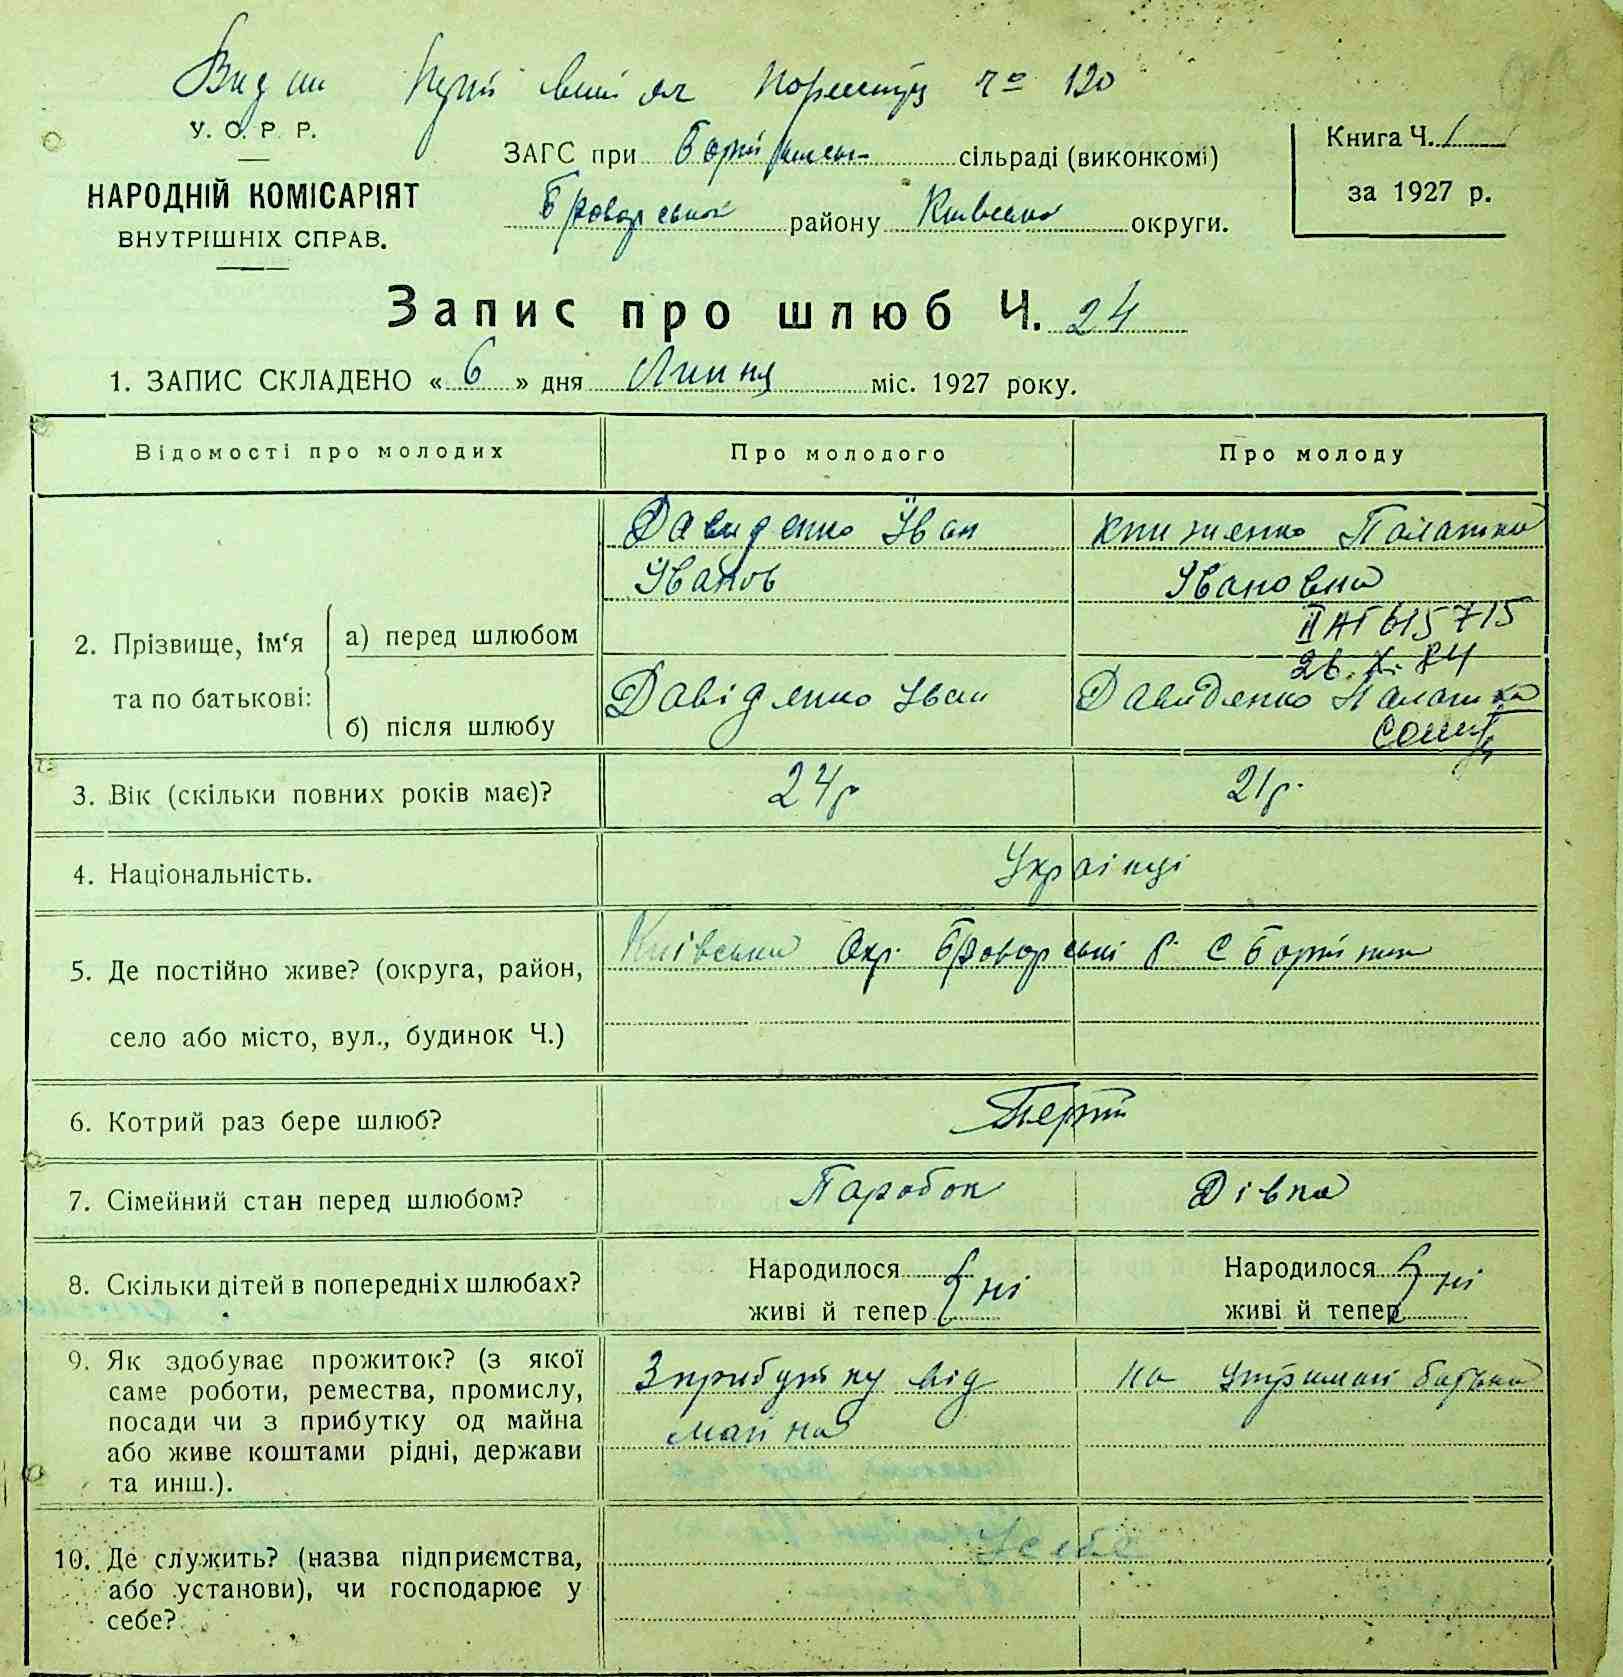 Видан
по реєстру № 120
У. С. Р. Р.
НАРОДНІЙ КОМІСАРІЯТ
ВНУТРІШНІХ СПРАВ.
ЗАГС при сільраді (виконкомі)
Броварської району Київської округи.
Книга Ч. 1
за 1927 р.
Запис про шлюб Ч. 24
1. ЗАПИС СКЛАДЕНО « 6 » дня Липня міс. 1927 року.
Відомості про молодих Про молодого Про молоду
2. Прізвище, ім‘я та по батькові:
а) перед шлюбом
Давиденко Іван
Іванов
Палажка
Івановна
II АГ 615715
26.X.84
б) після шлюбу
Давіденко Іван
Давиденко Палажка
3. Вік (скільки повних років має)? 24 р 21 р.
4. Національність. Українці
5. Де постійно живе? (округа, район,
село або місто, вул., будинок Ч.)
Київська Окр. Броварські р. С
6. Котрий раз бере шлюб?
7. Сімейний стан перед шлюбом? Паробок Дівка
8. Скільки дітей в попередніх шлюбах?
Народилося
живі й тепер ні
Народилося
живі й тепер ні
9. Як здобуває прожиток? (з якої
саме роботи, ремества, промислу,
посади чи з прибутку од майна
або живе коштами рідні, держави
та инш.).
З прибутку від
майна
на утримані батька
10. Де служить? (назва підприємства,
або установи), чи господарює у
себе?
У себе